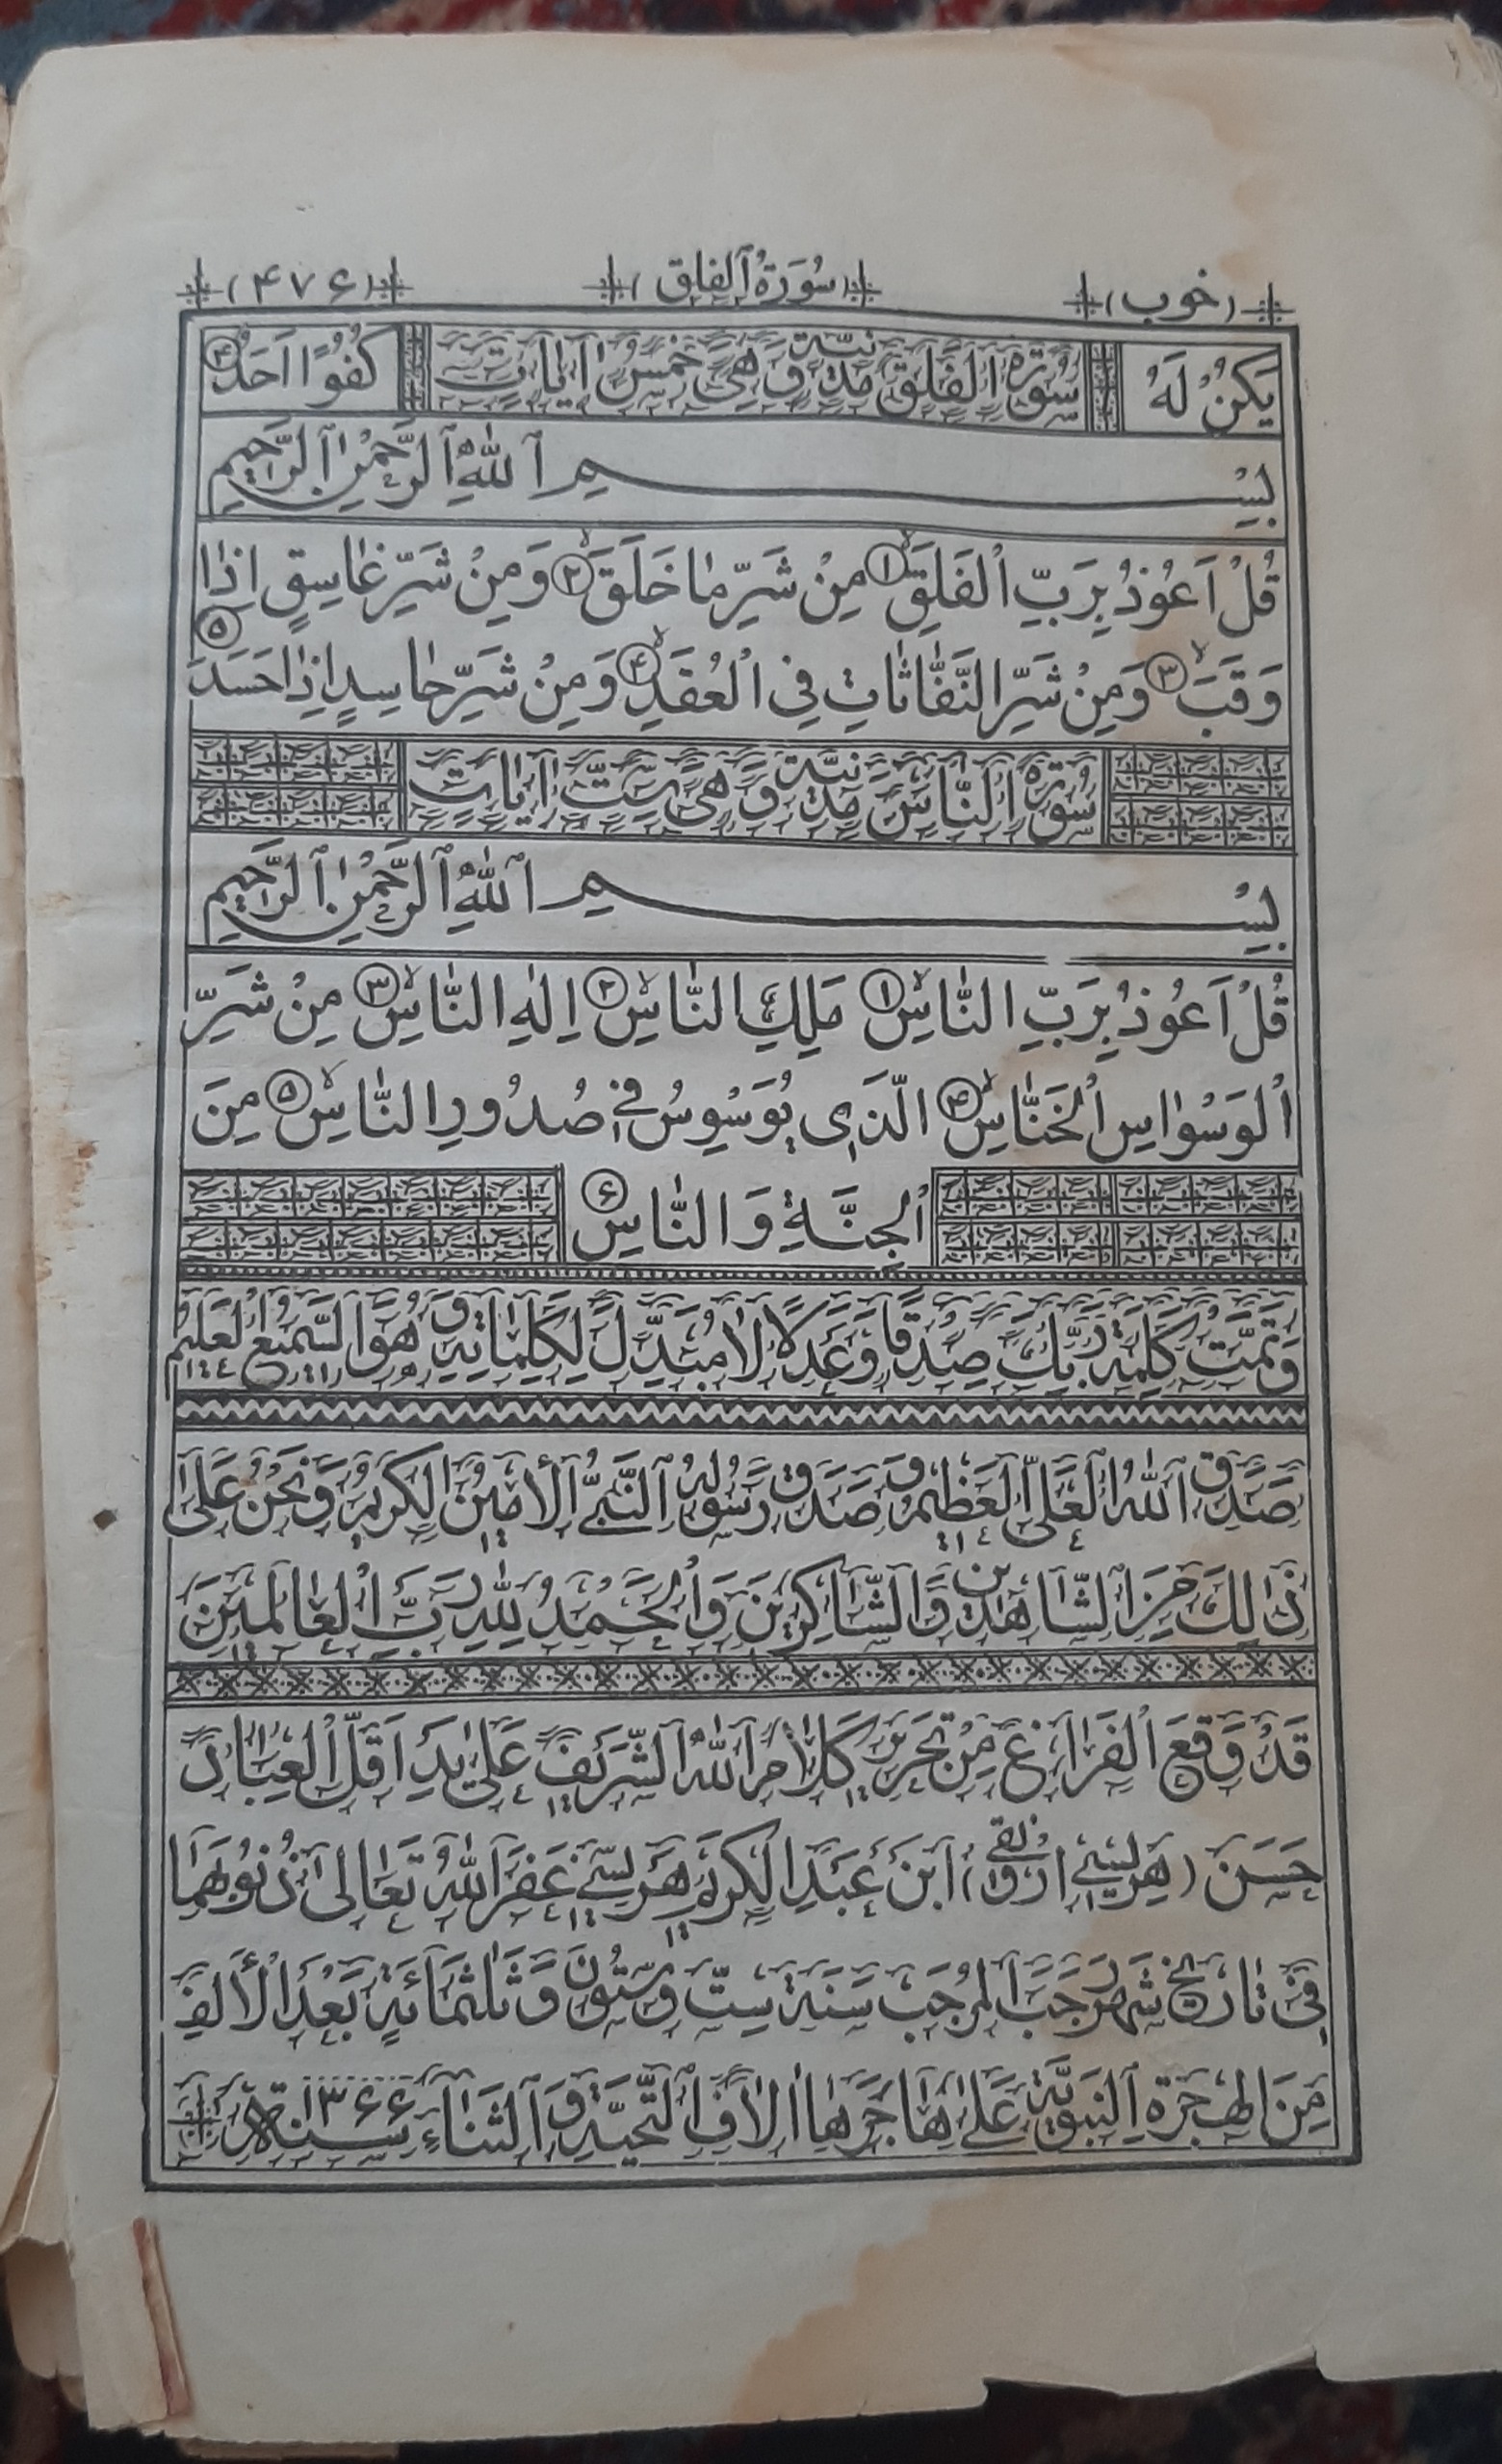 (خوب) (سُورَةُ ٱلفلق) (۴۷۶)
يَكُنْ لَهُ سُورَةُ الْفَلَقِ مَدَنِيَّةٌ وَهِيَ خَمْسُ اٰيَاتٍ كُفُوًا اَحَدٌ ۴
بِسْمِ ٱللّٰهِ ٱلرَّحْمٰنِ ٱلرَّحِيمِ
قُلْ اَعُوذُ بِرَبِّ الْفَلَقِ ۱ مِنْ شَرِّ مٰا خَلَقَ ۲ وَمِنْ شَرِّ غٰاسِقٍ اِذٰا
وَقَبَ ۳ وَمِنْ شَرِّ النَّفّٰاثٰاتِ فِي الْعُقَدِ ۴ وَمِنْ شَرِّ حٰاسِدٍ اِذٰا حَسَدَ ۵
سُورَةُ النّٰاسِ مَدَنِيَّةٌ وَهِيَ سِتُّ اٰيٰاتٍ
بِسْمِ ٱللّٰهِ ٱلرَّحْمٰنِ ٱلرَّحِيمِ
قُلْ اَعُوذُ بِرَبِّ النّٰاسِ ۱ مَلِكِ النّٰاسِ ۲ اِلٰهِ النّٰاسِ ۳ مِنْ شَرِّ
الْوَسْوٰاسِ الْخَنّٰاسِ ۴ الَّذِي يُوَسْوِسُ فِي صُدُورِ النّٰاسِ ۵ مِنَ
الْجِنَّةِ وَالنّٰاسِ ۶
وَتَمَّتْ كَلِمَةُ رَبِّكَ صِدْقًا وَعَدْلًا لٰا مُبَدِّلَ لِكَلِمٰاتِهِ وَهُوَ السَّمِيعُ الْعَلِيمُ
صَدَقَ ٱللّٰهُ الْعَلِيُّ الْعَظِيمُ وَصَدَقَ رَسُولُهُ ٱلنَّبِيُّ الْأَمِينُ الْكَرِيمُ وَنَحْنُ عَلىٰ
ذٰلِكَ مِنَ ٱلشّٰاهِدِينَ وَٱلشّٰاكِرِينَ وَالْحَمْدُ لِلّٰهِ رَبِّ الْعٰالَمِينَ
قَدْ وَقَعَ الْفَرٰاغُ مِنْ تَحْرِيرِ كَلٰامِ ٱللّٰهِ ٱلشَّرِيفِ عَلىٰ يَدِ اَقَلِّ الْعِبٰادِ
حَسَن (هَرِيسِي اَرْوَنَقِي) اِبْنِ عَبْدِ الْكَرِيمِ هَرِيسِي غَفَرَ ٱللّٰهُ تَعٰالىٰ ذُنُوبَهُمٰا
فِي تٰارِيخِ شَهْرِ رَجَبَ الْمُرَجَّبِ سَنَةَ سِتٍّ وَسِتُّونَ وَثَلٰثَمِائَةٍ بَعْدَ الْأَلْفِ
مِنَ الْهِجْرَةِ ٱلنَّبَوِيَّةِ عَلىٰ هٰاجَرَهٰا اٰلٰافُ ٱلتَّحِيَّةِ وَٱلثَّنٰاءِ سنة ۱۳۶۶